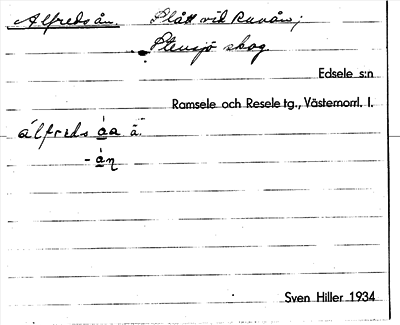 Alfredsån. Slått vid Ruvån;
Stensjö skog.
Edsele s:n
Ramsele och Resele tg., Västernorrl. l.
álfreds åa ä.
- ån
Sven Hiller 1934